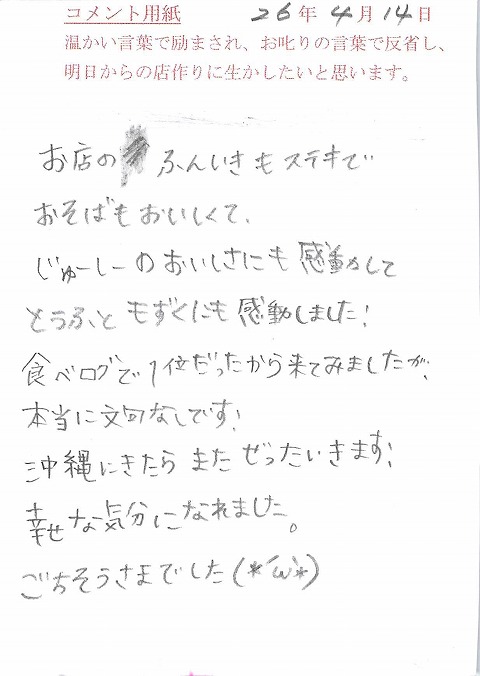 コメント用紙 26年4月14日
温かい言葉で励まされ、お叱りの言葉で反省し、
明日からの店作りに生かしたいと思います。
お店の ふんいきもステキで
おそばもおいしくて、
じゅーしーのおいしさにも感動して
とうふともずくにも感動しました!
食べログで1位だったから来てみましたが、
本当に文句なしです!
沖縄にきたらまたぜったいきます!
幸せな気分になれました。
ごちそうさまでした(*´ω`*)